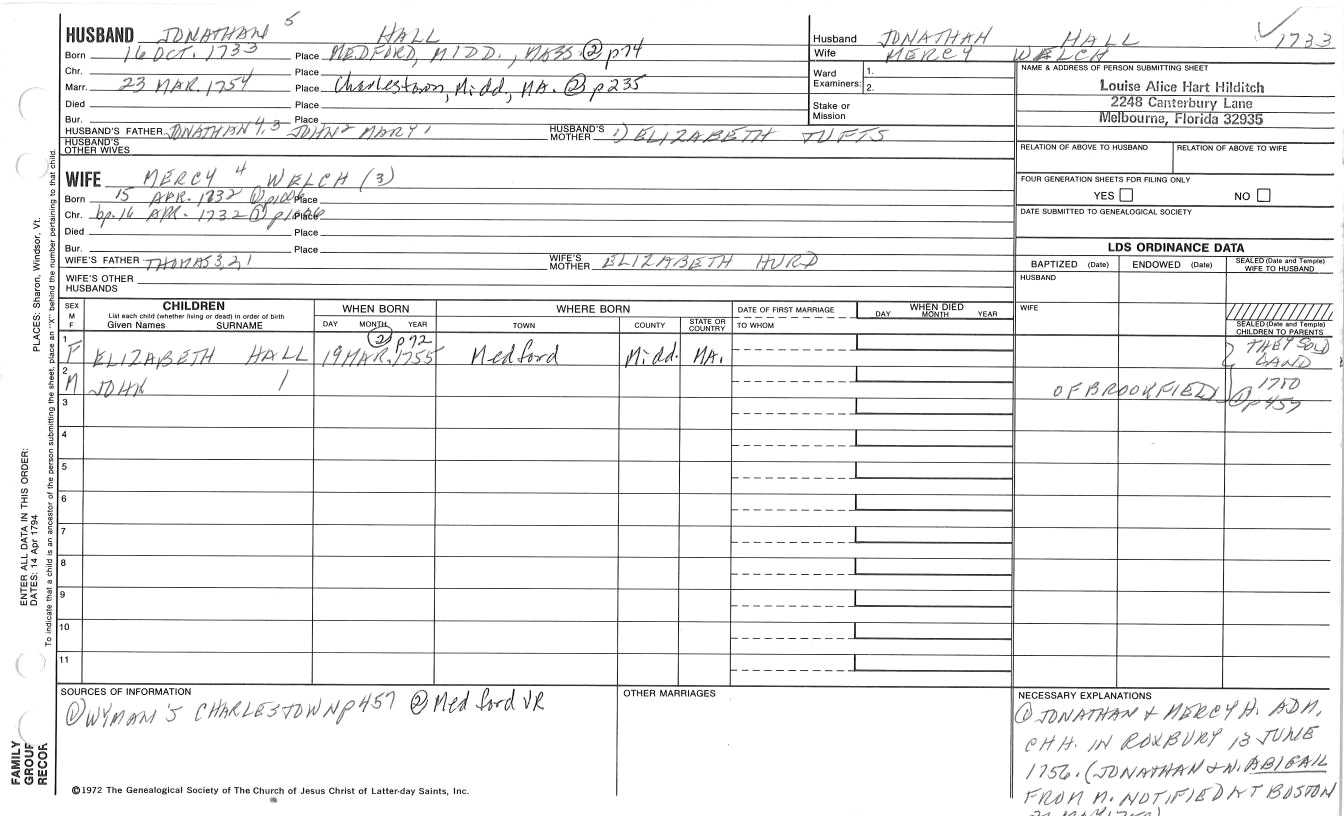 HUSBAND JONATHAN 5 HALL
Born 16 OCT. 1733 Place MEDFORD, MIDD., MASS. ② p74
Chr. Place
Marr. 23 MAR. 1754 Place Charlestown, Midd, MA. ② p235
Died Place
Bur. Place
HUSBAND'S FATHER JONATHAN 4,3 JOHN 2 MARY 1 HUSBAND'S MOTHER 1) ELIZABETH TUFTS
HUSBAND'S OTHER WIVES
WIFE MERCY 4 WELCH (3)
Born 15 APR. 1732 ① p1006 Place
Chr. bp. 16 APR. 1732 ① p1006 Place
Died Place
Bur. Place
WIFE'S FATHER THOMAS 3,2,1 WIFE'S MOTHER ELIZABETH HURD
WIFE'S OTHER HUSBANDS
Husband JONATHAN HALL 1733
Wife MERCY WELCH
Ward Examiners: 1. 2.
Stake or Mission
NAME & ADDRESS OF PERSON SUBMITTING SHEET
Louise Alice Hart Hilditch
2248 Canterbury Lane
Melbourne, Florida 32935
RELATION OF ABOVE TO HUSBAND RELATION OF ABOVE TO WIFE
FOUR GENERATION SHEETS FOR FILING ONLY
YES NO
DATE SUBMITTED TO GENEALOGICAL SOCIETY
LDS ORDINANCE DATA
BAPTIZED (Date) ENDOWED (Date) SEALED (Date and Temple) WIFE TO HUSBAND
HUSBAND
WIFE
SEALED (Date and Temple) CHILDREN TO PARENTS
SEX M F
CHILDREN
List each child (whether living or dead) in order of birth
Given Names SURNAME
WHEN BORN
DAY MONTH YEAR
WHERE BORN
TOWN COUNTY STATE OR COUNTRY
DATE OF FIRST MARRIAGE
TO WHOM
WHEN DIED
DAY MONTH YEAR
② p72
1 F ELIZABETH HALL 19 MAR. 1755 Medford Midd. MA.
2 M JOHN 1
THEY SOLD
LAND
1780
OF BROOKFIELD ① p457
3
4
5
6
7
8
9
10
11
SOURCES OF INFORMATION
① WYMAN'S CHARLESTOWN p457 ② Medford VR
OTHER MARRIAGES
NECESSARY EXPLANATIONS
① JONATHAN & MERCY H. ADM,
CHH. IN ROXBURY 13 JUNE
1756. (JONATHAN & W. ABIGAIL
FROM M. NOTIFIED AT BOSTON
©1972 The Genealogical Society of The Church of Jesus Christ of Latter-day Saints, Inc.
FAMILY GROUP RECOR
ENTER ALL DATA IN THIS ORDER:
DATES: 14 Apr 1794
PLACES: Sharon, Windsor, Vt.
To indicate that a child is an ancestor of the person submitting the sheet, place an "X" behind the number pertaining to that child.